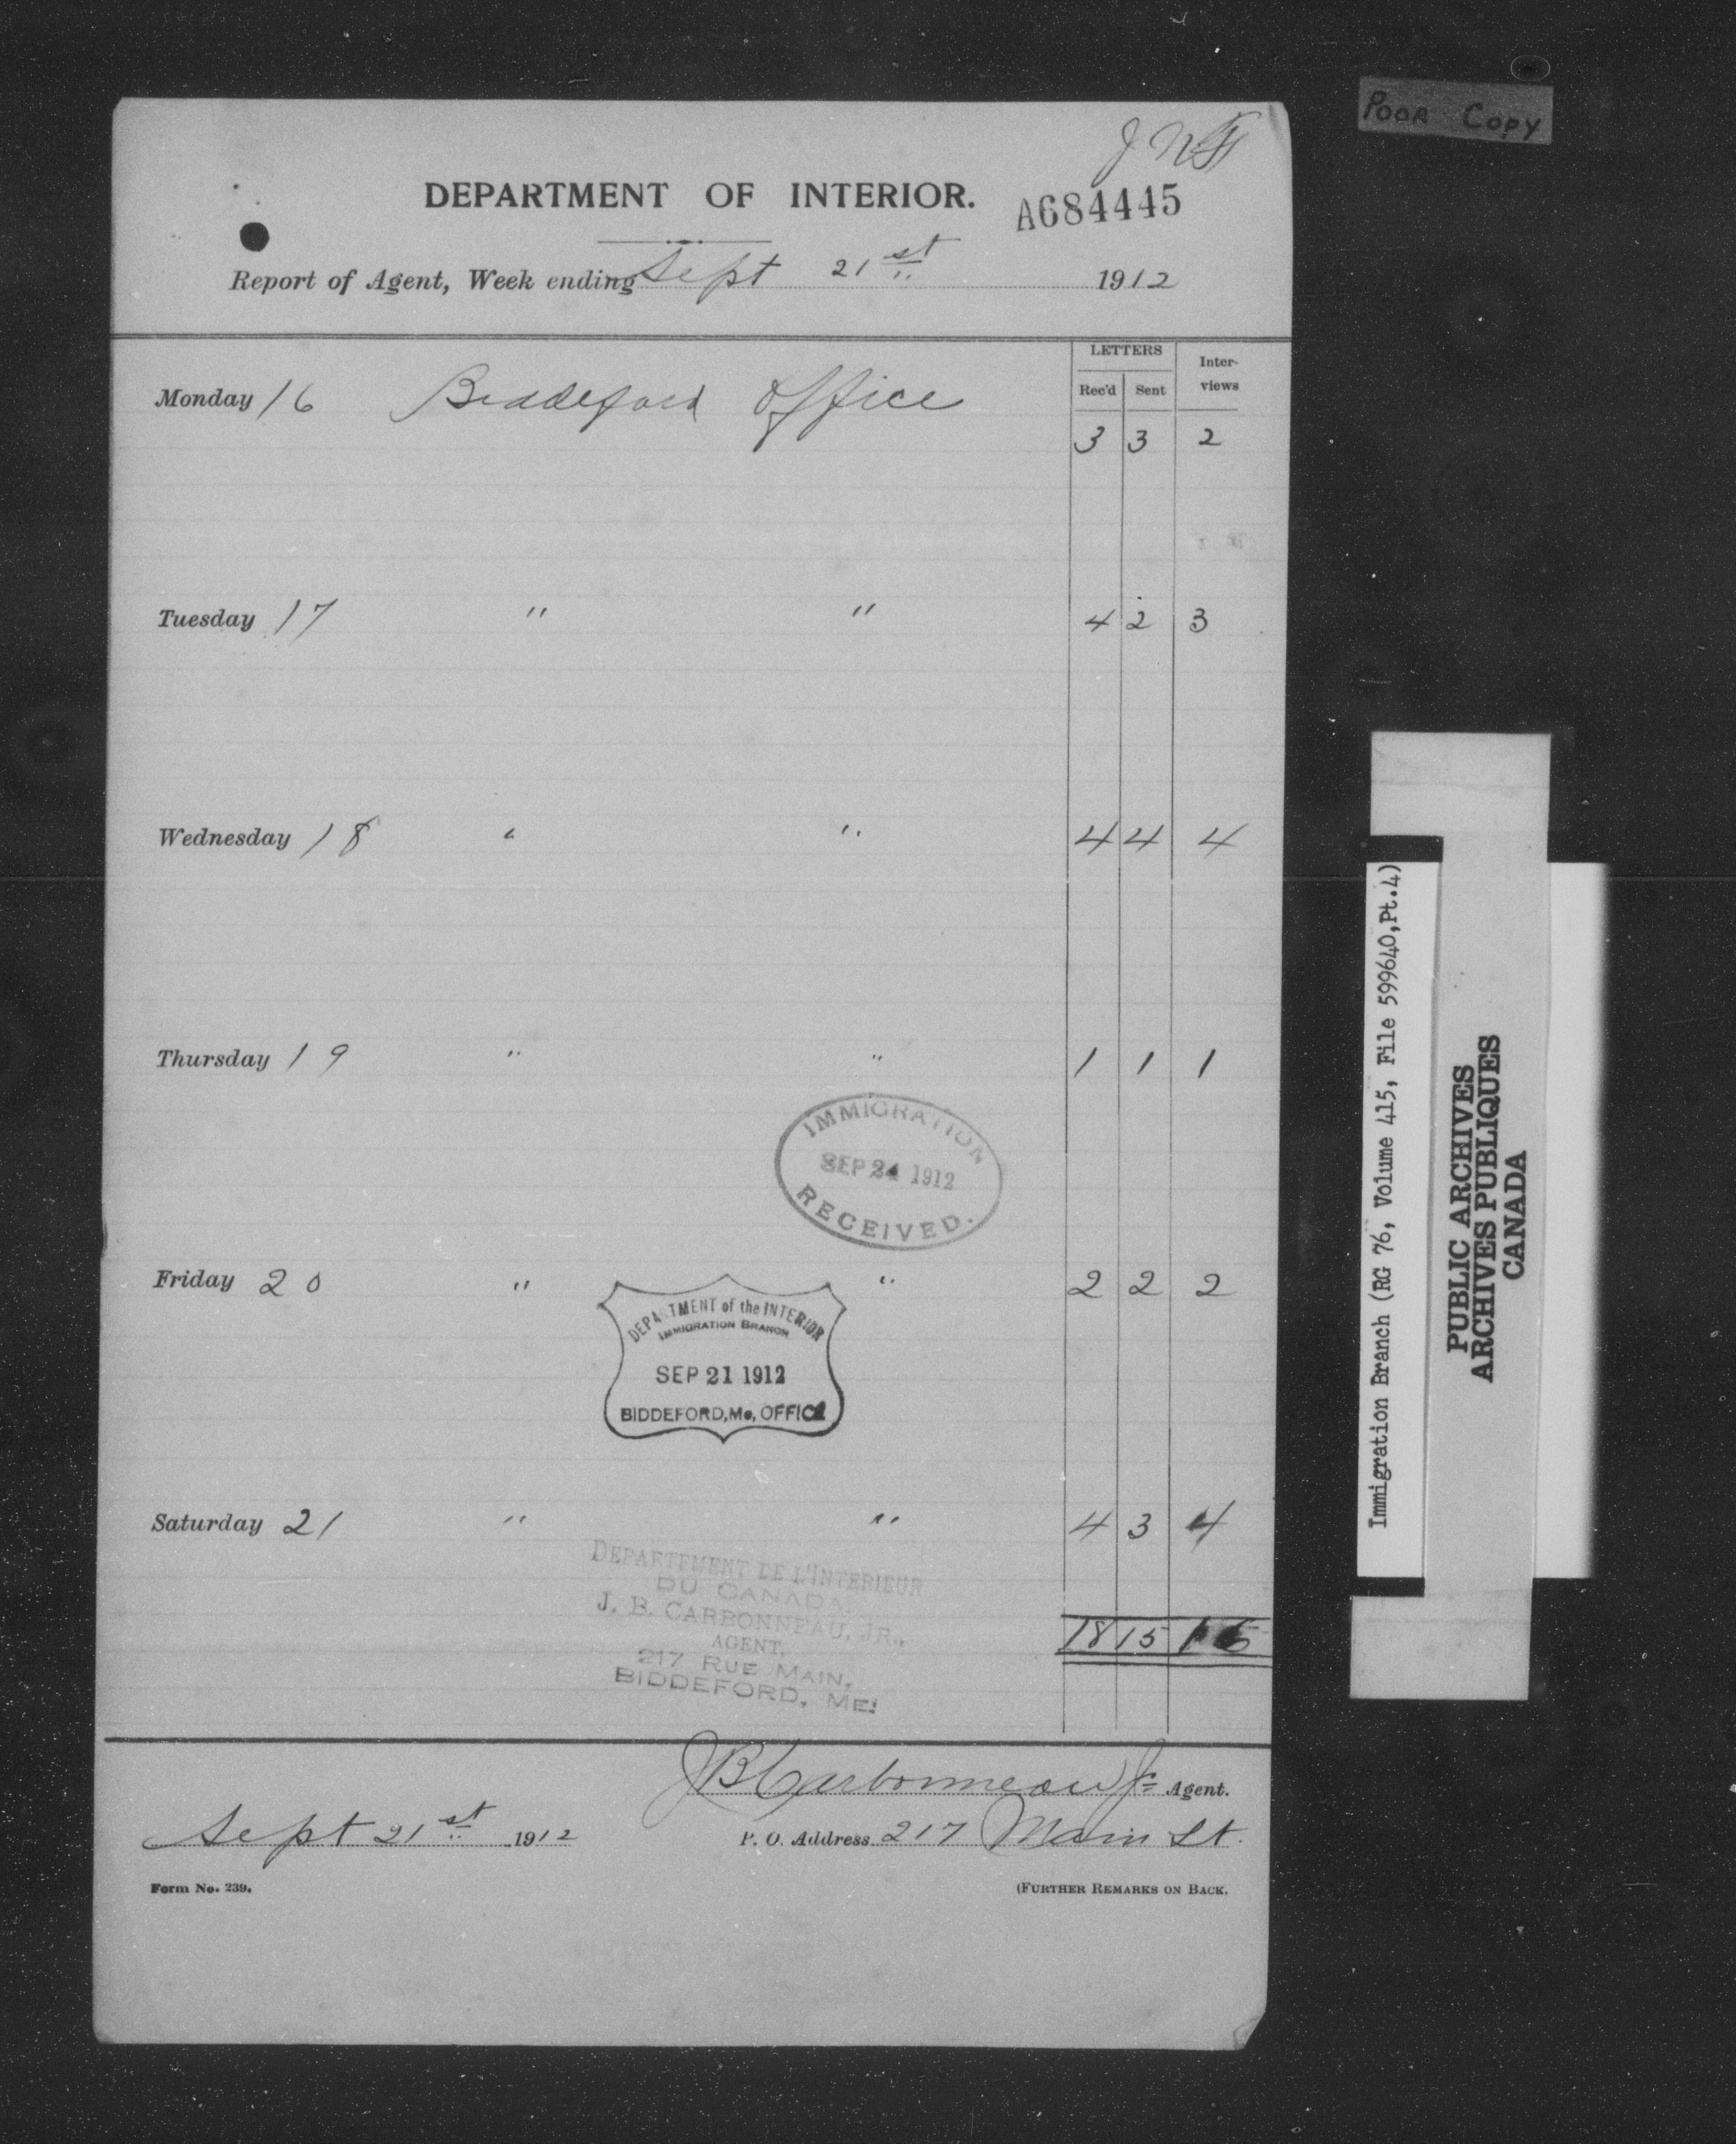 POOR COPY
DEPARTMENT OF INTERIOR.
A684445
Report of Agent, Week ending Sept 21st 1912
LETTERS
Inter-views
Rec'd Sent
Monday 16 Biddeford Office
3 3 2
Tuesday 17 " " 4 2 3
Wednesday 18 " " 4 4 4
Thursday 19 " " 1 1 1
IMMIGRATION
SEP 24 1912
RECEIVED.
Friday 20 " " 2 2 2
DEPARTMENT of the INTERIOR
IMMIGRATION BRANCH
SEP 21 1912
BIDDEFORD, Me, OFFICE
Saturday 21 " " 4 3 4
DEPARTEMENT DE L'INTERIEUR
DU CANADA,
J. B. CARBONNEAU, JR.,
AGENT,
217 RUE MAIN,
BIDDEFORD, ME.
18 15 16
JB Carbonneau Jr Agent.
Sept 21st 1912 P. O. Address 217 Main St.
Form No. 239. (FURTHER REMARKS ON BACK.
Immigration Branch (RG 76, Volume 415, File 599640,Pt.4)
PUBLIC ARCHIVES
ARCHIVES PUBLIQUES
CANADA